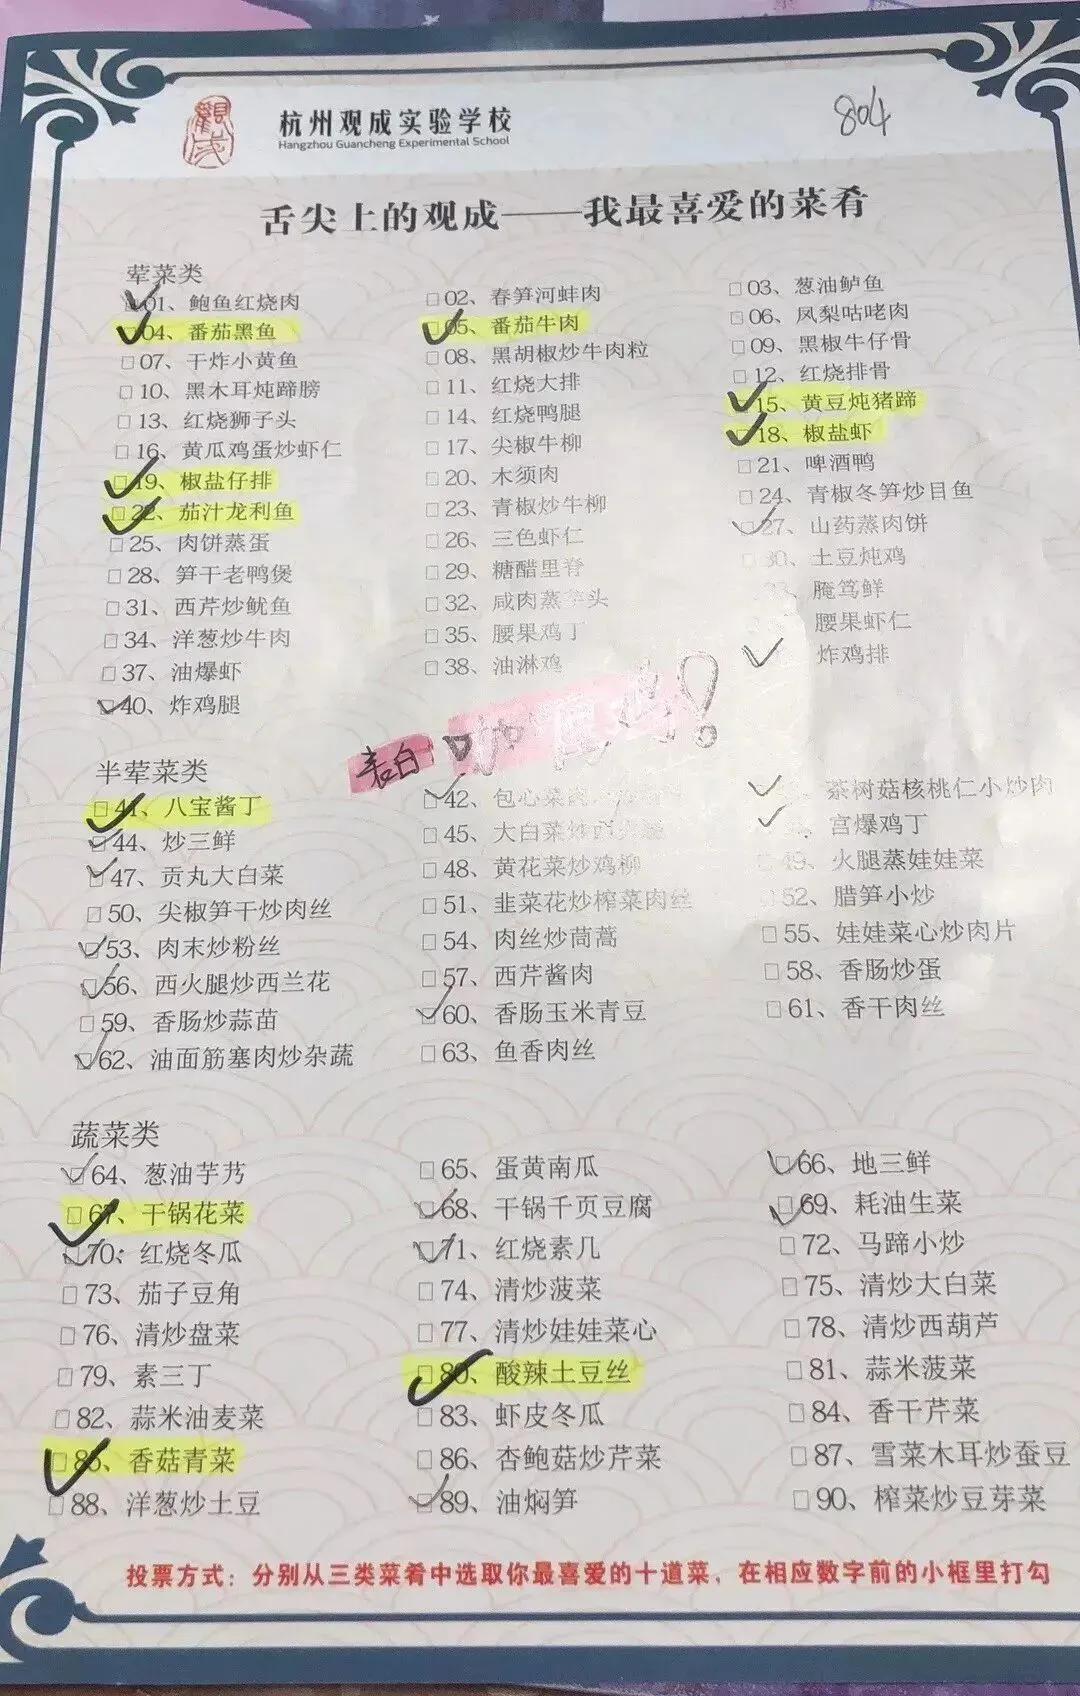 觀成
杭州观成实验学校
Hangzhou Guancheng Experimental School
804
舌尖上的观成——我最喜爱的菜肴
荤菜类
□01、鲍鱼红烧肉 □02、春笋河蚌肉 □03、葱油鲈鱼
□04、番茄黑鱼 □05、番茄牛肉 □06、凤梨咕咾肉
□07、干炸小黄鱼 □08、黑胡椒炒牛肉粒 □09、黑椒牛仔骨
□10、黑木耳炖蹄膀 □11、红烧大排 □12、红烧排骨
□13、红烧狮子头 □14、红烧鸭腿 □15、黄豆炖猪蹄
□16、黄瓜鸡蛋炒虾仁 □17、尖椒牛柳 □18、椒盐虾
□19、椒盐仔排 □20、木须肉 □21、啤酒鸭
□22、茄汁龙利鱼 □23、青椒炒牛柳 □24、青椒冬笋炒目鱼
□25、肉饼蒸蛋 □26、三色虾仁 □27、山药蒸肉饼
□28、笋干老鸭煲 □29、糖醋里脊 □30、土豆炖鸡
□31、西芹炒鱿鱼 □32、咸肉蒸芋头 33、腌笃鲜
□34、洋葱炒牛肉 □35、腰果鸡丁 腰果虾仁
□37、油爆虾 □38、油淋鸡 炸鸡排
□40、炸鸡腿
表白
半荤菜类
□41、八宝酱丁 □42、包心菜 茶树菇核桃仁小炒肉
□44、炒三鲜 □45、大白菜炒 宫爆鸡丁
□47、贡丸大白菜 □48、黄花菜炒鸡柳 49、火腿蒸娃娃菜
□50、尖椒笋干炒肉丝 □51、韭菜花炒榨菜肉丝 □52、腊笋小炒
□53、肉末炒粉丝 □54、肉丝炒茼蒿 □55、娃娃菜心炒肉片
□56、西火腿炒西兰花 □57、西芹酱肉 □58、香肠炒蛋
□59、香肠炒蒜苗 □60、香肠玉米青豆 □61、香干肉丝
□62、油面筋塞肉炒杂蔬 □63、鱼香肉丝
蔬菜类
□64、葱油芋艿 □65、蛋黄南瓜 □66、地三鲜
□67、干锅花菜 □68、干锅千页豆腐 □69、耗油生菜
□70、红烧冬瓜 □71、红烧素几 □72、马蹄小炒
□73、茄子豆角 □74、清炒菠菜 □75、清炒大白菜
□76、清炒盘菜 □77、清炒娃娃菜心 □78、清炒西葫芦
□79、素三丁 □80、酸辣土豆丝 □81、蒜米菠菜
□82、蒜米油麦菜 □83、虾皮冬瓜 □84、香干芹菜
□85、香菇青菜 □86、杏鲍菇炒芹菜 □87、雪菜木耳炒蚕豆
□88、洋葱炒土豆 □89、油焖笋 □90、榨菜炒豆芽菜
投票方式：分别从三类菜肴中选取你最喜爱的十道菜，在相应数字前的小框里打勾